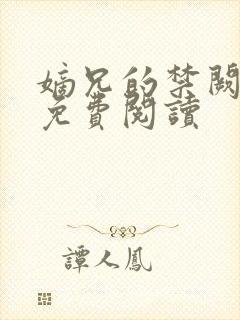 嫡兄的禁闕
免費閱讀
譚人鳳